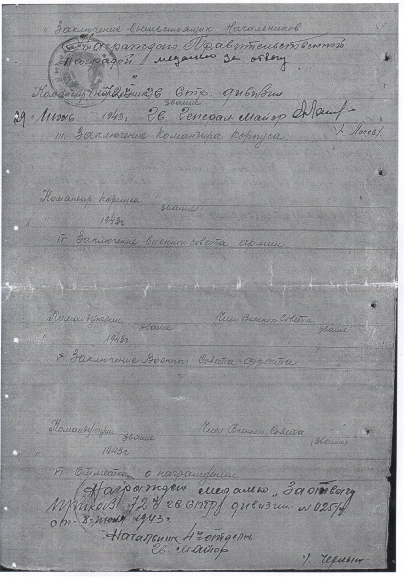 Заключение вышестоящих Начальников
Награждаю Правительственной
Наградой медалью За отвагу
Командир 72 Гв Стр. дивизии
звание
29 Июня 1943 г Гв. Генерал Майор
/ Лосев /
III Заключение Командира корпуса
Командир корпуса звание
" 1943 г
IV Заключение военного совета армии
Командующий Член Военного Совета
звание звание
" 1943 г
V Заключение Военного Совета фронта
Командующий Член Военного Совета
звание (звание
" 1943 г
VI Отметка о награждении
Награжден медалью „За отвагу
72 гв стр дивизии
от 8 июля 1943 г.
Начальник 4 отделен
Гв. майор